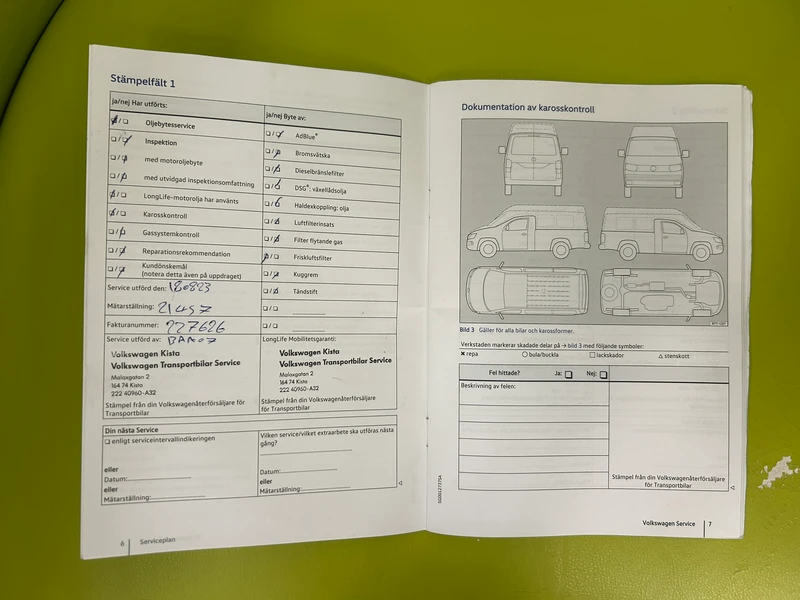 Stämpelfält 1
ja/nej Har utförts:
Oljebytesservice
Inspektion
med motoroljebyte
med utvidgad inspektionsomfattning
LongLife-motorolja har använts
Karosskontroll
Gassystemkontroll
Reparationsrekommendation
Kundönskemål
(notera detta även på uppdraget)
Service utförd den: 180823
Mätarställning: 21457
Fakturanummer: 227626
Service utförd av:
Volkswagen Kista
Volkswagen Transportbilar Service
Malaxgatan 2
164 74 Kista
222 40960-A32
Stämpel från din Volkswagenåterförsäljare för
Transportbilar
ja/nej Byte av:
AdBlue®
Bromsvätska
Dieselbränslefilter
DSG®: växellådsolja
Haldexkoppling: olja
Luftfilterinsats
Filter flytande gas
Friskluftsfilter
Kuggrem
Tändstift
LongLife Mobilitetsgaranti:
Volkswagen Kista
Volkswagen Transportbilar Service
Malaxgatan 2
164 74 Kista
222 40960-A32
Stämpel från din Volkswagenåterförsäljare för
Transportbilar
Din nästa Service
enligt serviceintervallindikeringen
eller
Datum:
eller
Mätarställning:
Vilken service/vilket extraarbete ska utföras nästa
gång?
eller
Datum:
eller
Mätarställning:
6 Serviceplan
Dokumentation av karosskontroll
Bild 3 Gäller för alla bilar och karossformer.
Verkstaden markerar skadade delar på → bild 3 med följande symboler:
× repa ○ bula/buckla □ lackskador △ stenskott
Fel hittade? Ja: Nej:
Beskrivning av felen:
Stämpel från din Volkswagenåterförsäljare
för Transportbilar
Volkswagen Service 7